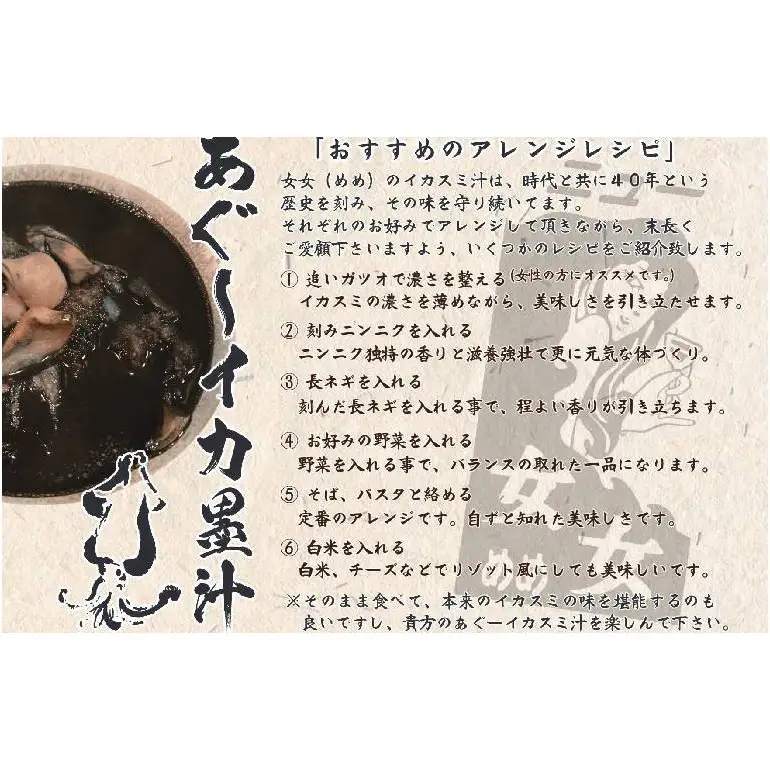 あぐーイカ墨汁
「おすすめのアレンジレシピ」
女女（めめ）のイカスミ汁は、時代と共に４０年という
歴史を刻み、その味を守り続いてます。
それぞれのお好みてアレンジして頂きながら、末長く
ご愛顧下さいますよう、いくつかのレシピをご紹介致します。
① 追いガツオで濃さを整える(女性の方にオススメです。)
イカスミの濃さを薄めながら、美味しさを引き立たせます。
② 刻みニンニクを入れる
ニンニク独特の香りと滋養強壮て更に元気な体づくり。
③ 長ネギを入れる
刻んだ長ネギを入れる事で、程よい香りが引き立ちます。
④ お好みの野菜を入れる
野菜を入れる事で、バランスの取れた一品になります。
⑤ そば、パスタと絡める
定番のアレンジです。自ずと知れた美味しさです。
⑥ 白米を入れる
白米、チーズなどてリゾット風にしても美味しいてす。
※そのまま食べて、本来のイカスミの味を堪能するのも
良いてすし、貴方のあぐーイカスミ汁を楽しんて下さい。
女女
めめ